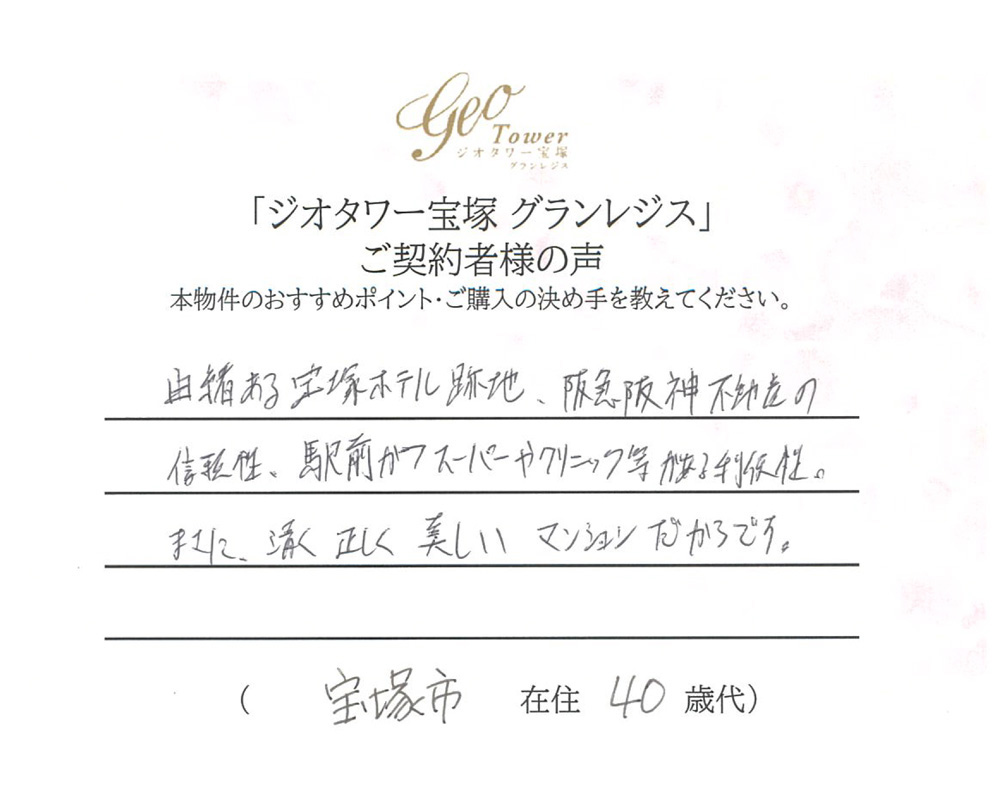 Geo
Tower
ジオタワー宝塚
グランレジス
「ジオタワー宝塚 グランレジス」
ご契約者様の声
本物件のおすすめポイント・ご購入の決め手を教えてください。
由緒ある宝塚ホテル跡地、阪急阪神不動産の
信頼性、駅前かつスーパーやクリニック等がある利便性。
まさに、清く正しく美しいマンションだからです。
（ 宝塚市 在住 40 歳代）